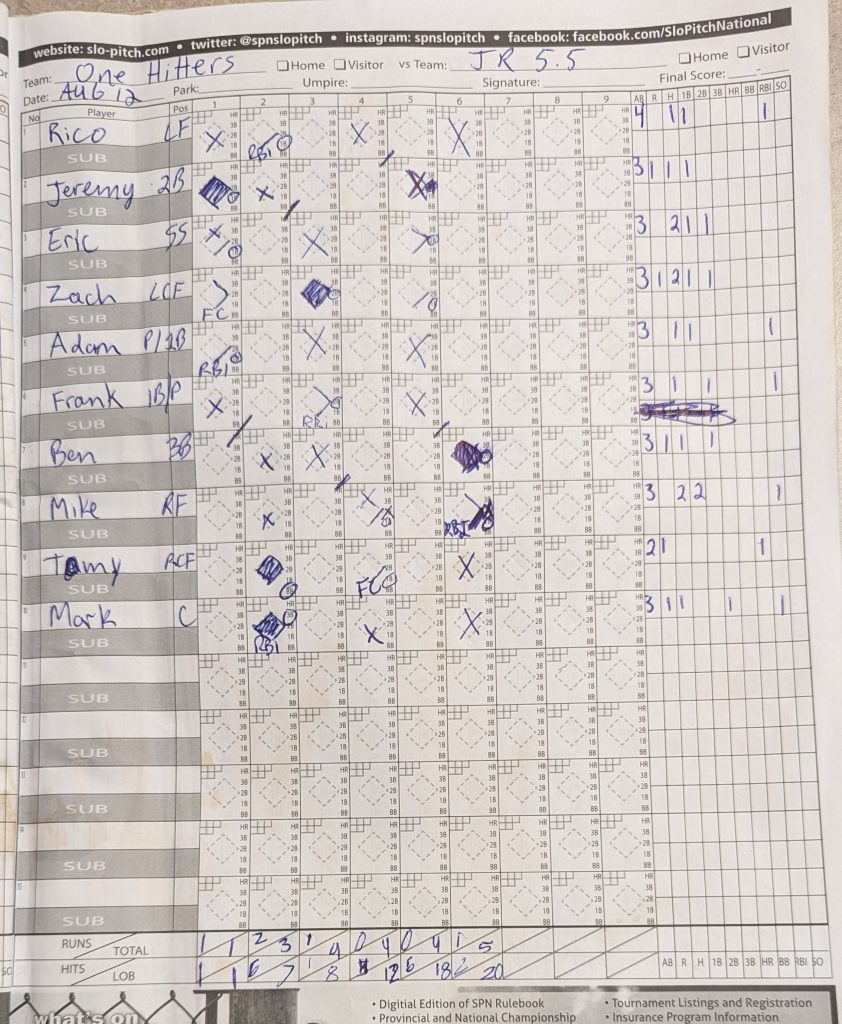 website: slo-pitch.com • twitter: @spnslopitch • instagram: spnslopitch • facebook: facebook.com/SloPitchNational
Team: One Hitters Home Visitor vs Team: JR 5.5 Home Visitor
Date: AUG 12 Park: Umpire: Signature: Final Score:
No Player Pos 1 2 3 4 5 6 7 8 9 AB R H 1B 2B 3B HR BB RBI SO
1 Rico LF RBI 4 1 1 1
SUB
2 Jeremy 2B 3 1 1 1
SUB
3 Eric SS 3 2 1 1
SUB
4 Zach LCF FC 3 1 2 1 1
SUB
5 Adam P/1B RBI 3 1 1 1
SUB
6 Frank 1B/P RBI 3 1 1 1
SUB
7 Ben 3B 3 1 1 1
SUB
8 Mike RF RBI 3 2 2 1
SUB
9 Tamy RCF FC 2 1 1
SUB
10 Mark C RBI 3 1 1 1 1
SUB
11
SUB
12
SUB
13
SUB
14
SUB
15
SUB
RUNS TOTAL 1 1 2 3 1 4 0 4 0 4 1 5
HITS LOB 1 1 6 7 1 8 12 6 18 2 20 AB R H 1B 2B 3B HR BB RBI SO
what's on
• Digitial Edition of SPN Rulebook
• Provincial and National Championship
• Tournament Listings and Registration
• Insurance Program Information